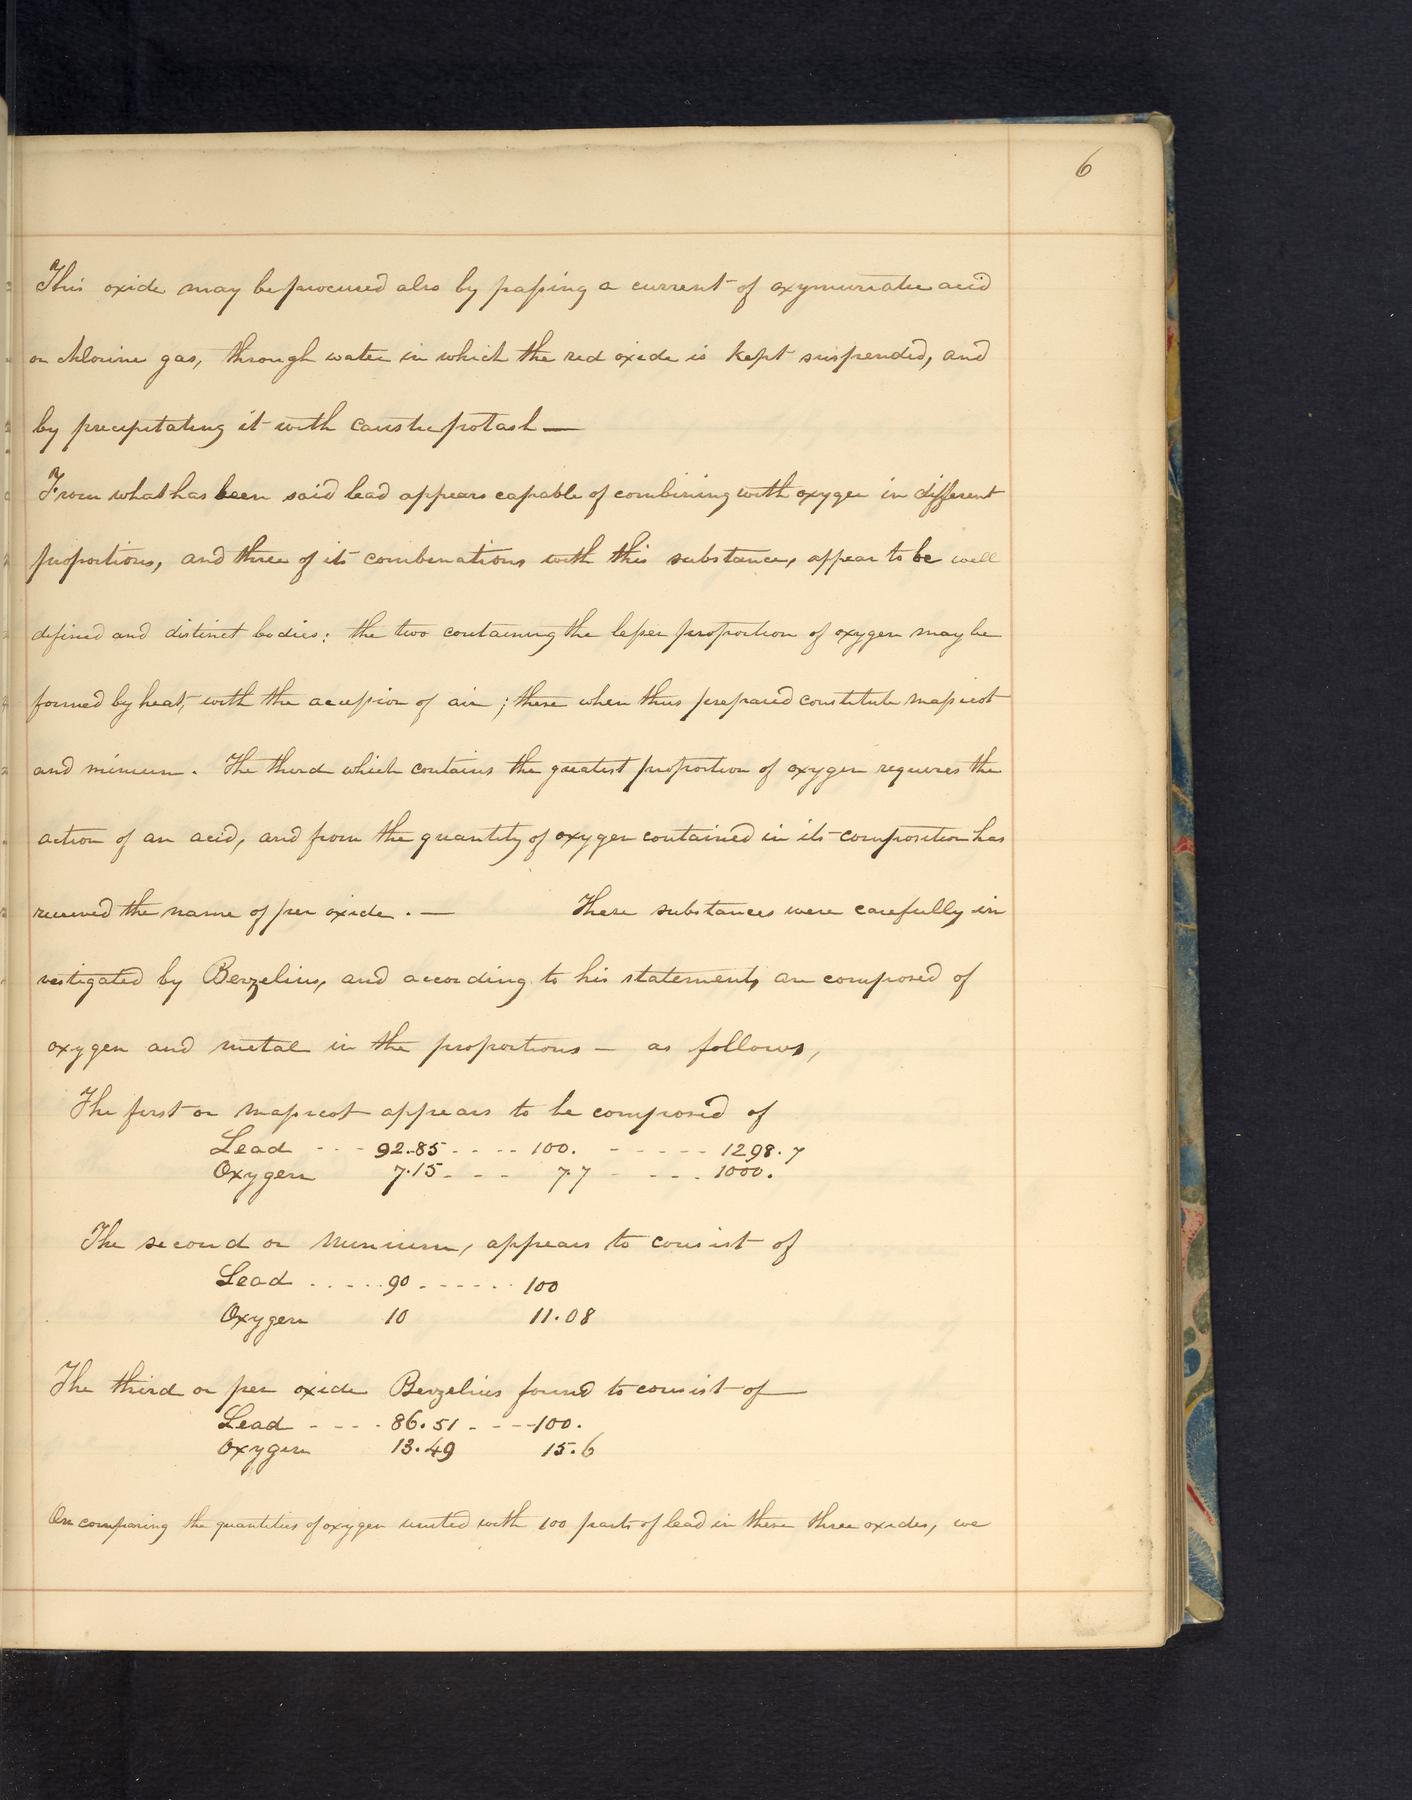 6
This oxide may be procured also by passing a current of oxymuriatic acid
or chlorine gas, through water in which the red oxide is kept suspended, and
by precipitating it with caustic potash —
From what has been said lead appears capable of combining with oxygen in different
proportions, and three of its combinations with this substance, appear to be well
defined and distinct bodies: the two containing the lesser proportion of oxygen may be
formed by heat, with the accession of air; these when thus prepared constitute massicot
and minium. The third which contains the greatest proportion of oxygen requires the
action of an acid, and from the quantity of oxygen contained in its composition has
received the name of per oxide. — These substances were carefully in
vestigated by Berzelius, and according to his statements, are composed of
oxygen and metal in the proportions — as follows,
The first or massicot appears to be composed of
Lead - - - 92.85 - - - - 100. - - - - - 1298.7
Oxygen 7.15 - - - 7.7 - - - - 1000.
The second or minium, appears to consist of
Lead - - - - - 90 - - - - - - 100
Oxygen 10 11.08
The third or per oxide Berzelius found to consist of —
Lead - - - - 86.51 - - - - 100.
Oxygen 13.49 15.6
On comparing the quantities of oxygen united with 100 parts of lead in these three oxides, we